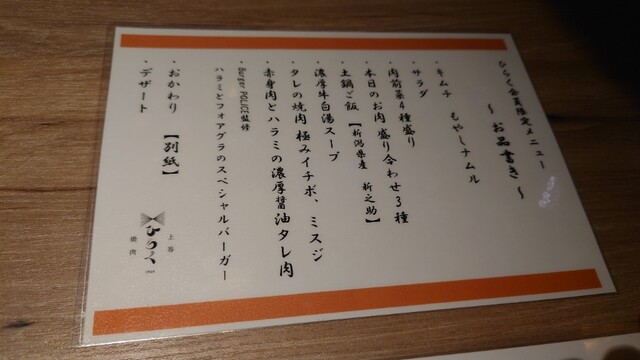 ひらく会員限定メニュー
～お品書き～
・キムチ　もやしナムル
・サラダ
・肉前菜4種盛り
・本日のお肉 盛り合わせ3種
・土鍋ご飯【新潟県産　新之助】
・濃厚牛白湯スープ
・タレの焼肉 極みイチボ、ミスジ
・赤身肉とハラミの濃厚醤油タレ肉
・Burger POLICE監修
ハラミとフォアグラのスペシャルバーガー
・おかわり【別紙】
・デザート
上等
ひらく
焼肉